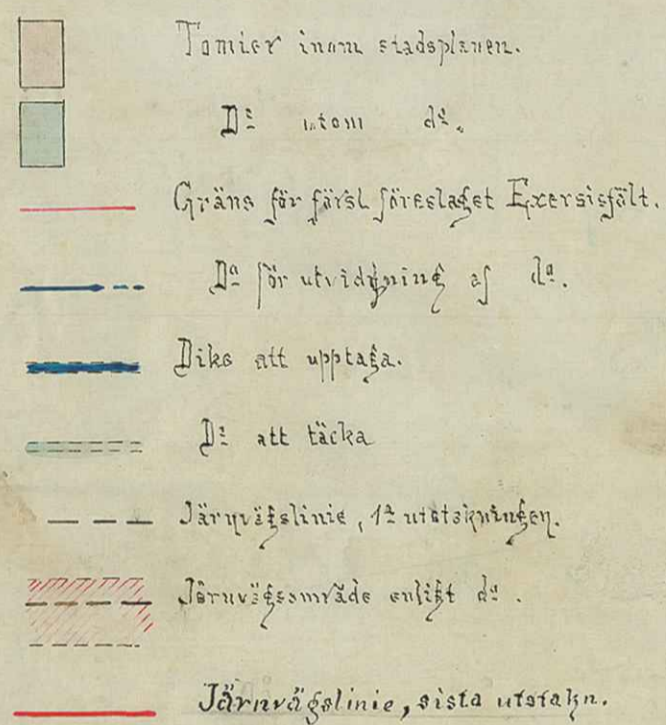 Tomter inom stadsplanen.
Dº utom dº.
Gräns för försl föreslaget Exersisfält.
Dº för utvidgning af dº.
Dike att upptaga.
Dº att täcka
Järnvägslinie, 1ª utstakningen.
Järnvägsområde enligt dº.
Järnvägslinie, sista utstakn.